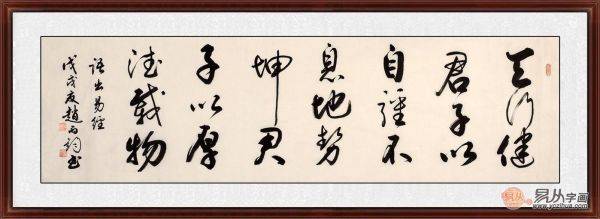 天行健
君子以
自强不
息地势
坤君
子以厚
德载物
语出易经
戊戌夏赵雨词书
易从字画
www.yozihua.com